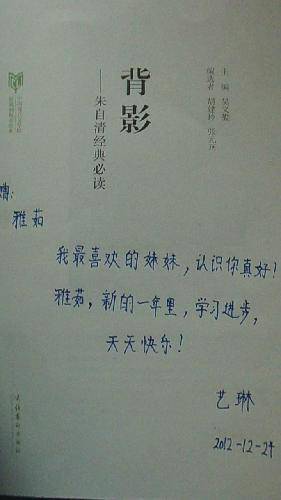 背影
——朱自清经典必读
主 编
编选者
赠:
雅茹
我最喜欢的妹妹,认识你真好!
雅茹,新的一年里,学习进步,
天天快乐!
艺琳
2012-12-24
文化艺术出版社